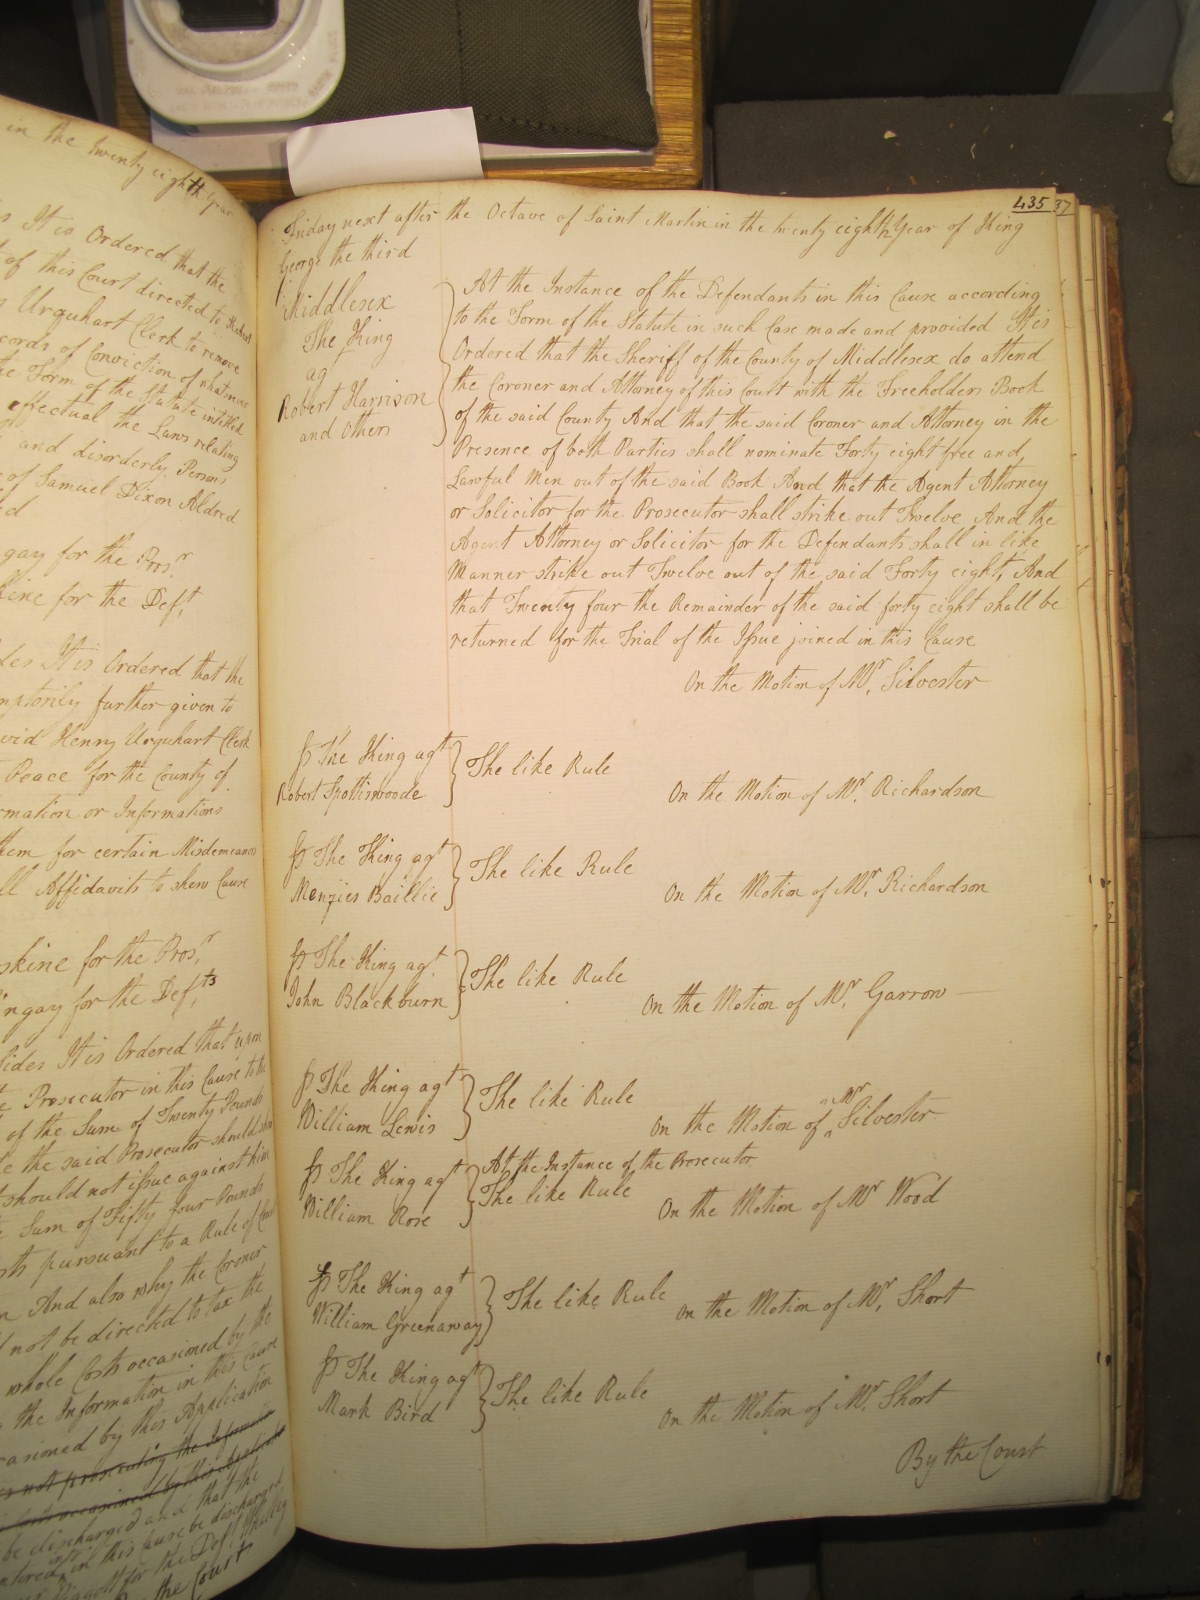 in the twenty eighth Year
It is Ordered that the
of this Court directed to
Urquhart Clerk to remove
Records of Conviction of whatsoever
the Form of the Statute intitled
effectual the Laws relating
and disorderly Persons
of Samuel Dixon Aldred
for the Prosr.
for the Deft.
It is Ordered that the
further given to
Henry Urquhart Clerk
Peace for the County of
or Informations
them for certain Misdemeanors
Affidavits to shew Cause
for the Prosr.
for the Defts.
It is Ordered that upon
Prosecutor in this Cause to the
of the Sum of Twenty Pounds
the said Prosecutor should
should not issue against him
Sum of Fifty four Pounds
pursuant to a Rule of
And also why the Coroner
not be directed to tax the
whole Costs occasioned by the
the Information in this Cause
occasioned by this Application
not prosecuting the Information
Costs occasioned by this Application
be discharged and that the
in this Cause be discharged
for the Deft.
the Court
435 37
Friday next after the Octave of Saint Martin in the twenty eighth Year of King
George the third
Middlesex
The King
ag
Robert Harrison
and Others
At the Instance of the Defendants in this Cause according
to the Form of the Statute in such Case made and provided It is
Ordered that the Sheriff of the County of Middlesex do attend
the Coroner and Attorney of this Court with the Freeholders Book
of the said County And that the said Coroner and Attorney in the
Presence of both Parties shall nominate Forty eight free and
Lawful Men out of the said Book And that the Agent Attorney
or Solicitor for the Prosecutor shall strike out Twelve And the
Agent Attorney or Solicitor for the Defendants shall in like
Manner strike out Twelve out of the said Forty eight, And
that Twenty four the Remainder of the said forty eight shall be
returned for the Trial of the Issue joined in this Cause
On the Motion of Mr. Silvester
The King agt
Robert Spottiswoode
The like Rule
On the Motion of Mr. Richardson
The King agt
Menzies Baillie
The like Rule
On the Motion of Mr. Richardson
The King agt.
John Blackburn
The like Rule
On the Motion of Mr. Garrow
The King agt
William Lewis
The like Rule
On the Motion of Mr Silvester
The King agt
William Rose
At the Instance of the Prosecutor
The like Rule
On the Motion of Mr Wood
The King agt
William Greenaway
The like Rule
On the Motion of Mr. Short
The King agt
Mark Bird
The like Rule
On the Motion of Mr. Short
By the Court